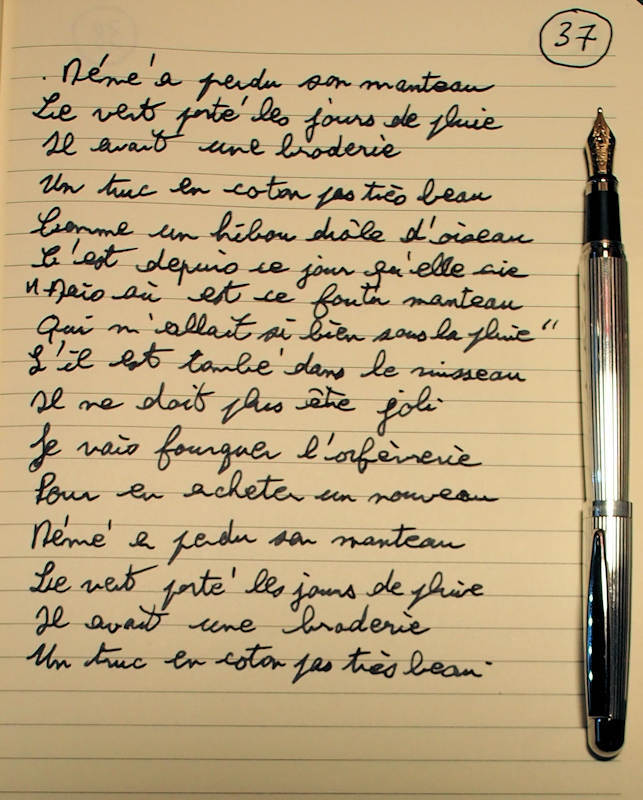 37
. Mémé a perdu son manteau
Le vert porté les jours de pluie
Il avait une broderie
Un truc en coton pas très beau
Comme un hibou drôle d'oiseau
C'est depuis ce jour qu'elle crie
"Mais où est ce foutu manteau
Qui m'allait si bien sous la pluie"
S'il est tombé dans le ruisseau
Il ne doit plus être joli
Je vais fourguer l'orfèvrerie
Pour en acheter un nouveau
Mémé a perdu son manteau
Le vert porté les jours de pluie
Il avait une broderie
Un truc en coton pas très beau.